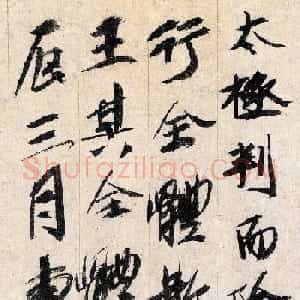 太極判而
行全體
王其全體
辰三月
Shufaziliao.com